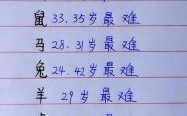 鼠 33.35岁最难
马 28.31岁最难
兔 24.42岁最难
羊 29岁最难